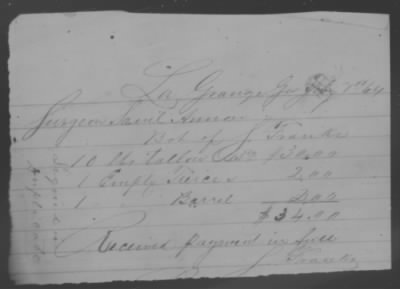 La Grange Ga 7th 64
Surgeon Saml Annan
Bot of J Franks
10 lbs tallow $30.00
1 Empty Tierces 2.00
1 Barrel 2.00
$34.00
Received payment in full
J Franks